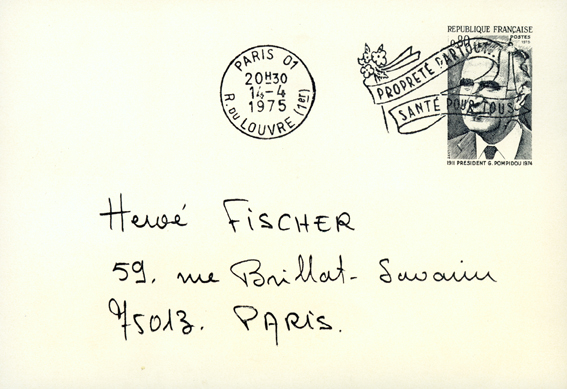 REPUBLIQUE FRANÇAISE
0,80
POSTES
1975
PARIS 01
20H30
14-4
1975
R. DU LOUVRE (1er)
PROPRETÉ PARTOUT
SANTÉ POUR TOUS
1911 PRESIDENT G. POMPIDOU 1974
Hervé FISCHER
59, rue Brillat-Savarin
75013. PARIS.